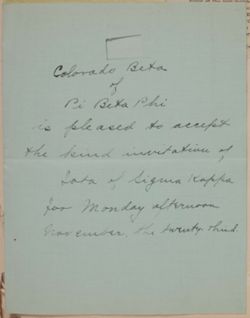 Colorado Beta
of
Pi Beta Phi
is pleased to accept
the kind invitation of
Iota of Sigma Kappa
for Monday afternoon
November, the twenty-third.